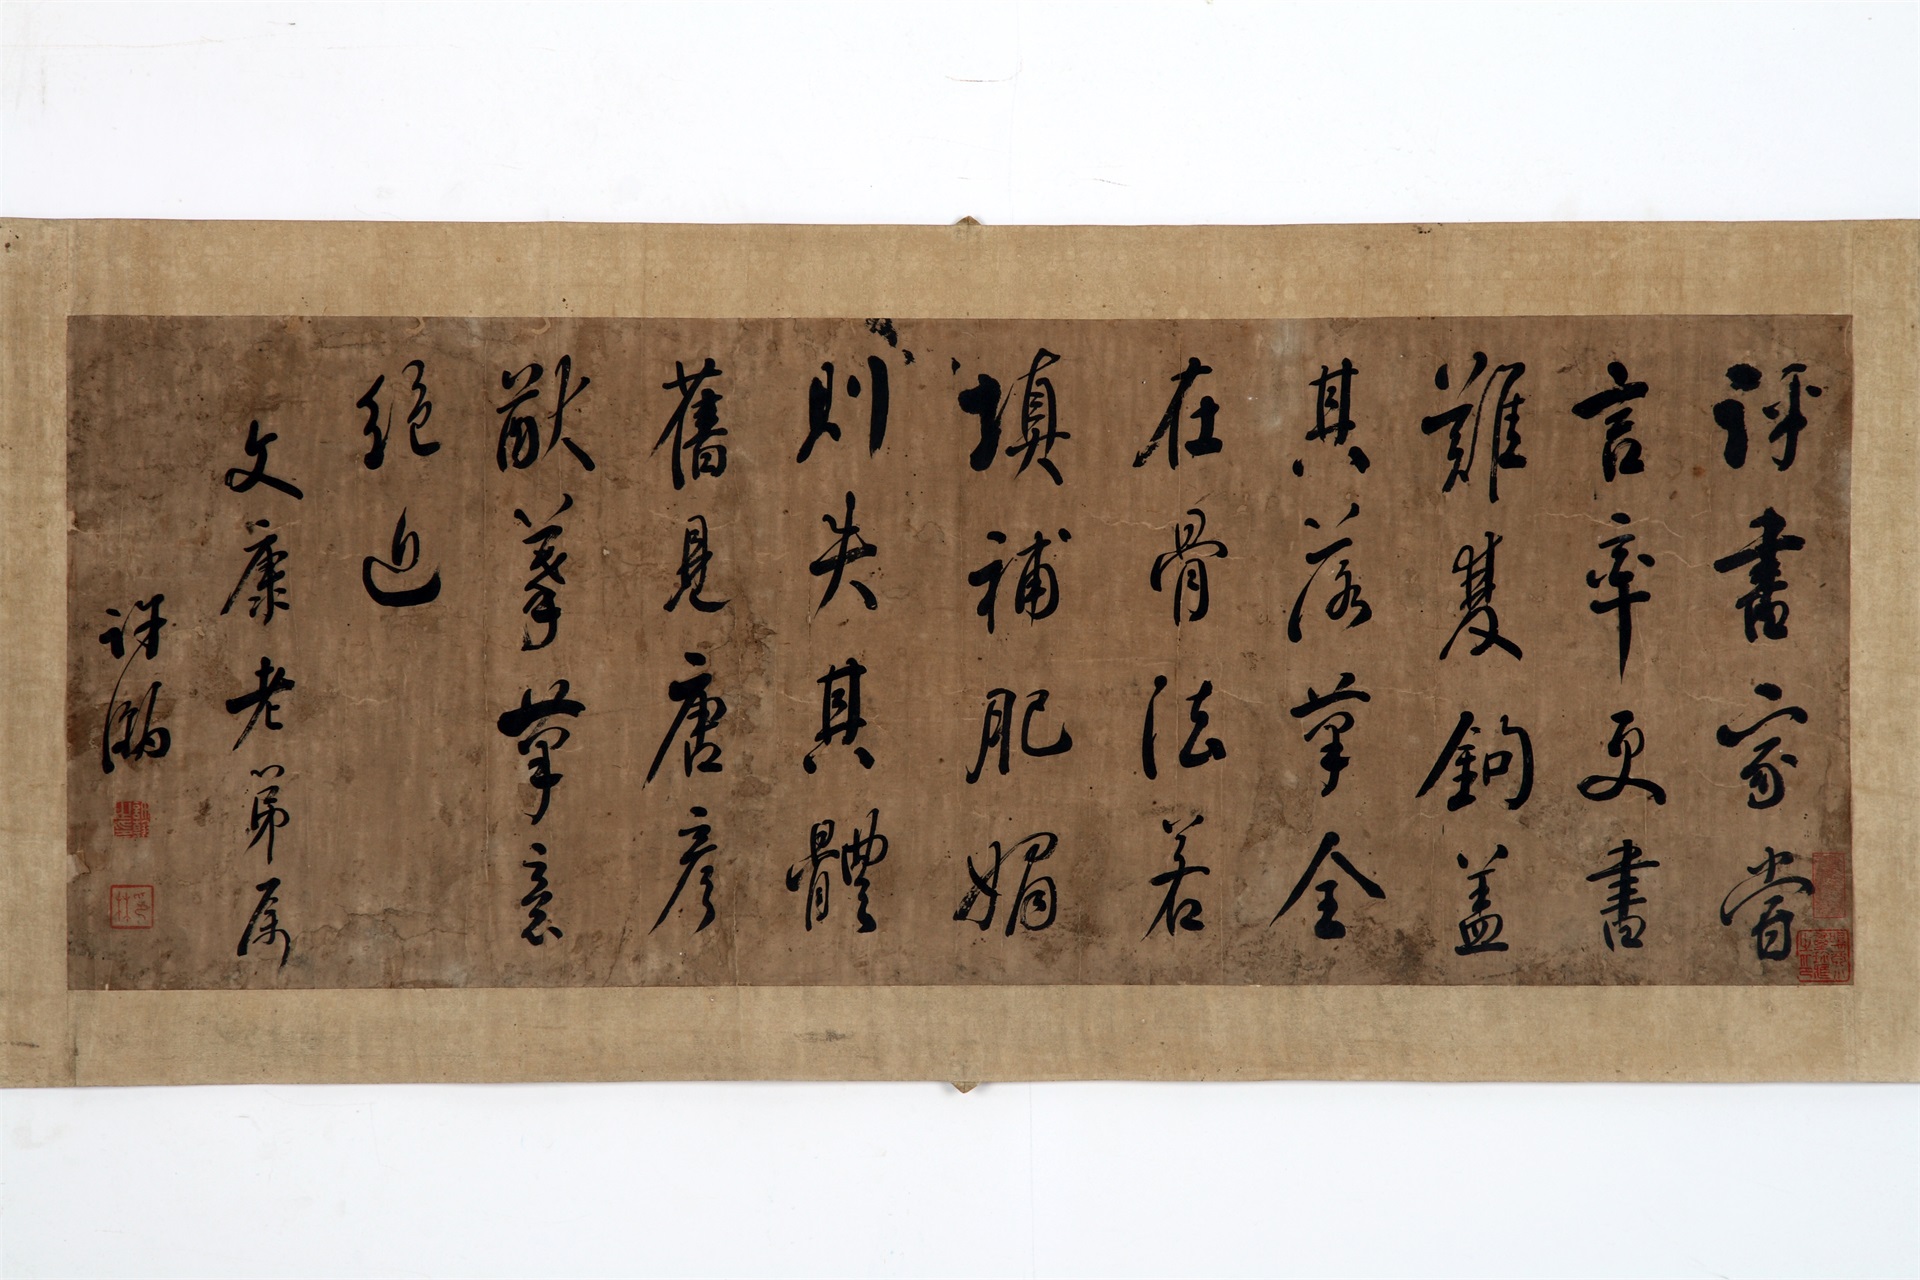 評書家嘗
言率更書
難雙鉤蓋
其落筆全
在骨法若
填補肥媚
則失其體
舊見唐彥
猷摹筆意
絕近
文康老弟属
許瀚